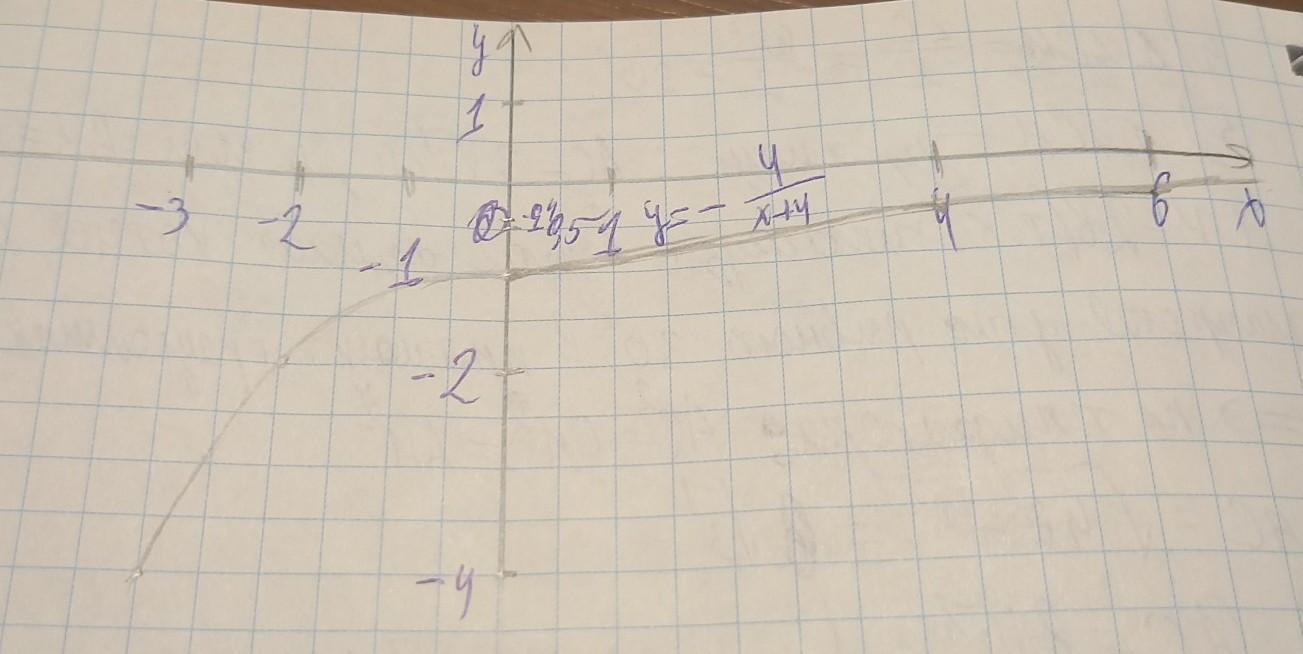 y
1
-3 -2 -1 0 -0,5 1 y = - 4/(x+4) 4 6 x
-2
-4